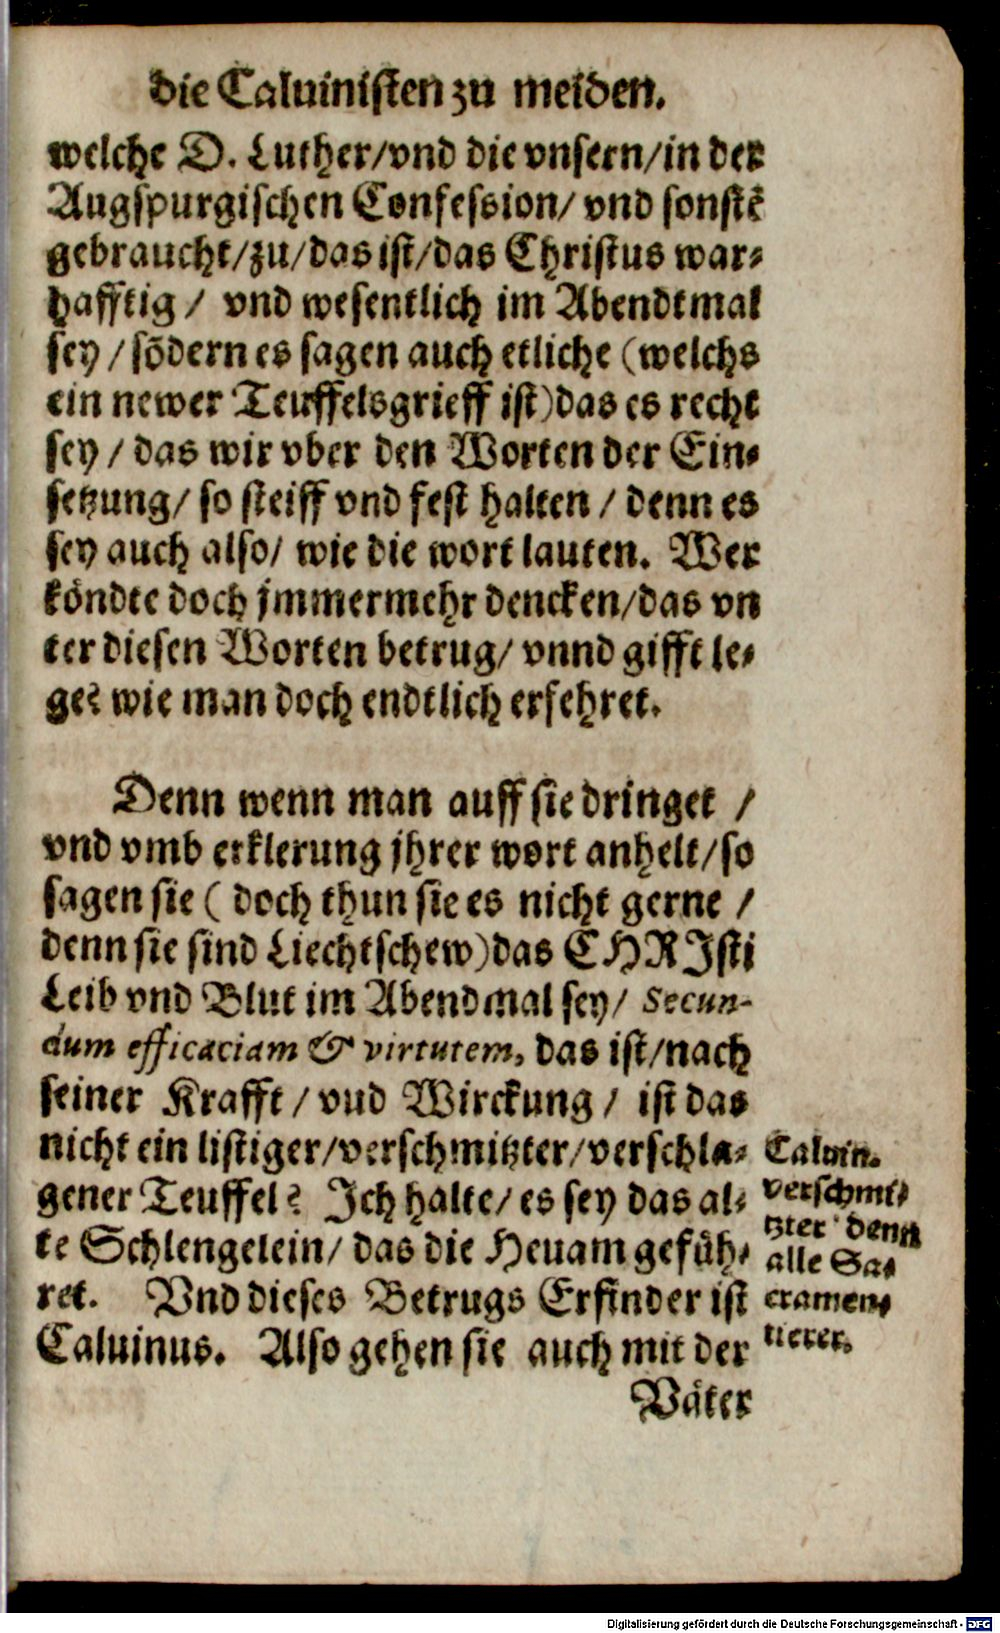 die Caluinisten zu meiden.
welche D. Luther/vnd die vnsern/in der
Augspurgischen Confession/ vnd sonstẽ
gebraucht/zu/das ist/das Christus war-
hafftig / vnd wesentlich im Abendtmal
sey / sõdern es sagen auch etliche (welchs
ein newer Teuffelsgrieff ist) das es recht
sey / das wir vber den Worten der Ein-
setzung/ so steiff vnd fest halten / denn es
sey auch also/ wie die wort lauten. Wer
köndte doch jmmermehr dencken/das vn
ter diesen Worten betrug/ vnnd gifft le-
ge? wie man doch endtlich erfehret.
Denn wenn man auff sie dringet /
vnd vmb erklerung jhrer wort anhelt/so
sagen sie ( doch thun sie es nicht gerne /
denn sie sind Liechtschew) das CHRJsti
Leib vnd Blut im Abendmal sey/ Secun-
dum efficaciam & virtutem, das ist/nach
seiner Krafft / vud Wirckung / ist das
nicht ein listiger/verschmitzter/verschla-
gener Teuffel? Jch halte/ es sey das al-
te Schlengelein/ das die Heuam gefüh-
ret. Vnd dieses Betrugs Erfinder ist
Caluinus. Also gehen sie auch mit der
Väter
Caluin.
verschmi-
tzter denn
alle Sa-
cramen-
tierer.
Digitalisierung gefördert durch die Deutsche Forschungsgemeinschaft - DFG